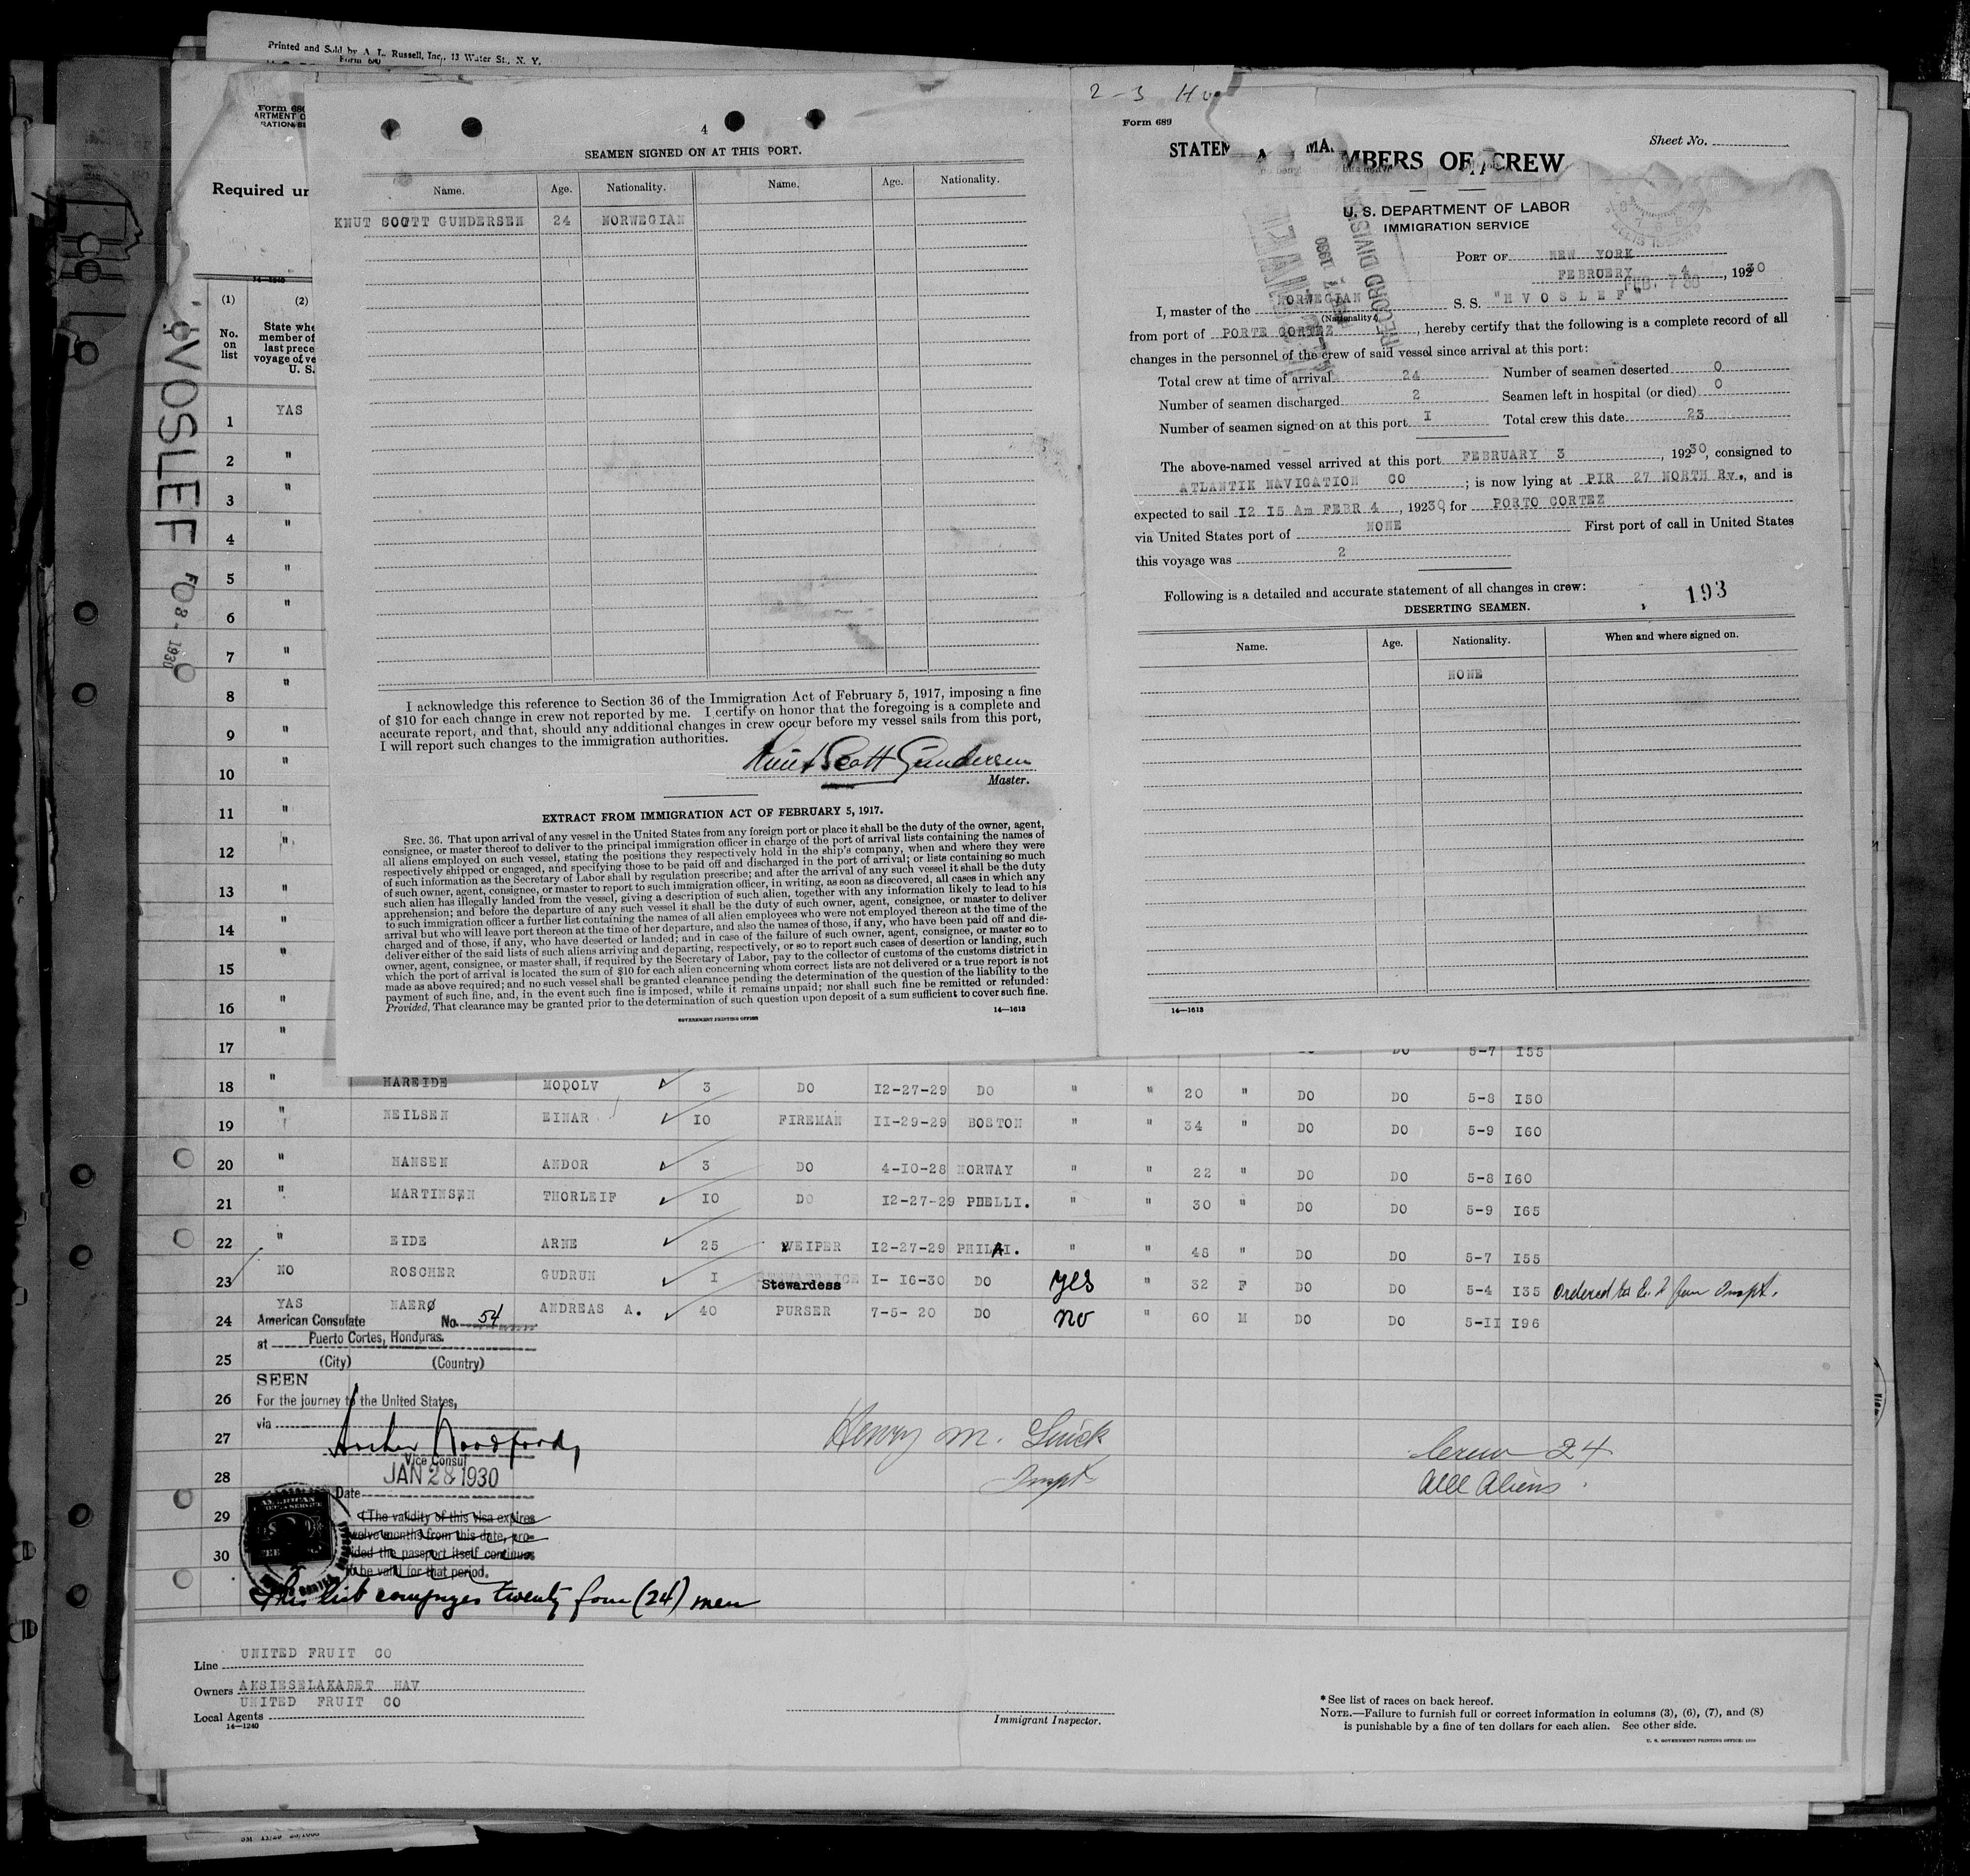 Printed and Sold by A. L. Russell, Inc., 13 Water St., N. Y.
Form 680
Form 680
Required un
14—1240
(1)
No.
on
list
(2)
State whe
member of
last prece
voyage of ve
U. S.
HVOSLEF
8 - 1930
1 YAS
2 "
3 "
4 "
5 "
6 "
7 "
8 "
9 "
10 "
11 "
12 "
13 "
14 "
15 "
16 "
17 "
4
SEAMEN SIGNED ON AT THIS PORT.
Name. Age. Nationality. Name. Age. Nationality.
KNUT SCOTT GUNDERSEN 24 NORWEGIAN
I acknowledge this reference to Section 36 of the Immigration Act of February 5, 1917, imposing a fine
of $10 for each change in crew not reported by me. I certify on honor that the foregoing is a complete and
accurate report, and that, should any additional changes in crew occur before my vessel sails from this port,
I will report such changes to the immigration authorities.
Knut Scott Gundersen
Master.
EXTRACT FROM IMMIGRATION ACT OF FEBRUARY 5, 1917.
SEC. 36. That upon arrival of any vessel in the United States from any foreign port or place it shall be the duty of the owner, agent,
consignee, or master thereof to deliver to the principal immigration officer in charge of the port of arrival lists containing the names of
all aliens employed on such vessel, stating the positions they respectively hold in the ship's company, when and where they were
respectively shipped or engaged, and specifying those to be paid off and discharged in the port of arrival; or lists containing so much
of such information as the Secretary of Labor shall by regulation prescribe; and after the arrival of any such vessel it shall be the duty
of such owner, agent, consignee, or master to report to such immigration officer, in writing, as soon as discovered, all cases in which any
such alien has illegally landed from the vessel, giving a description of such alien, together with any information likely to lead to his
apprehension; and before the departure of any such vessel it shall be the duty of such owner, agent, consignee, or master to deliver
to such immigration officer a further list containing the names of all alien employees who were not employed thereon at the time of the
arrival but who will leave port thereon at the time of her departure, and also the names of those, if any, who have been paid off and dis-
charged and of those, if any, who have deserted or landed; and in case of the failure of such owner, agent, consignee, or master so to
deliver either of the said lists of such aliens arriving and departing, respectively, or so to report such cases of desertion or landing, such
owner, agent, consignee, or master shall, if required by the Secretary of Labor, pay to the collector of customs of the customs district in
which the port of arrival is located the sum of $10 for each alien concerning whom correct lists are not delivered or a true report is not
made as above required; and no such vessel shall be granted clearance pending the determination of the question of the liability to the
payment of such fine, and, in the event such fine is imposed, while it remains unpaid; nor shall such fine be remitted or refunded:
Provided, That clearance may be granted prior to the determination of such question upon deposit of a sum sufficient to cover such fine.
GOVERNMENT PRINTING OFFICE 14—1613
2 - 3
Form 689
Sheet No.
STATEM MA. MBERS OF CREW
U. S. DEPARTMENT OF LABOR
IMMIGRATION SERVICE
RECORD DIVISION
PORT OF NEW YORK
FEBRUERY 4, 1930
I, master of the NORWEGIAN S. S. "HVOSLEF"
(Nationality)
from port of PORTE CORTEZ, hereby certify that the following is a complete record of all
changes in the personnel of the crew of said vessel since arrival at this port:
Total crew at time of arrival 24 Number of seamen deserted 0
Number of seamen discharged 2 Seamen left in hospital (or died) 0
Number of seamen signed on at this port I Total crew this date 23
The above-named vessel arrived at this port FEBRUARY 3, 19230, consigned to
ATLANTIK NAVIGATION CO; is now lying at PIR 27 NORTH Rv., and is
expected to sail I2 I5 Am FEBR 4, 19230, for PORTO CORTEZ
via United States port of NONE First port of call in United States
this voyage was 2
Following is a detailed and accurate statement of all changes in crew:
193
DESERTING SEAMEN.
Name. Age. Nationality. When and where signed on.
NONE
14—1613
5-7 I55
18 " HAREIDE MODOLV 3 DO I2-27-29 DO " " 20 " DO DO 5-8 I50
19 " NEILSEN EINAR IO FIREMAN II-29-29 BOSTON " " 34 " DO DO 5-9 I60
20 " HANSEN ANDOR 3 DO 4-IO-28 NORWAY " " 22 " DO DO 5-8 I60
21 " MARTINSEN THORLEIF IO DO I2-27-29 PHELLI. " " 30 " DO DO 5-9 I65
22 " EIDE ARNE 25 WEIPER I2-27-29 PHILAI. " " 48 " DO DO 5-7 I55
23 NO ROSCHER GUDRUN I Stewardess I- I6-30 DO yes " 32 F DO DO 5-4 I35
24 YAS NAERØ ANDREAS A. 40 PURSER 7-5- 20 DO no " 60 M DO DO 5-II I96
American Consulate No. 54
at Puerto Cortes, Honduras.
25 (City) (Country)
SEEN
26 For the journey to the United States,
via
27
Vice Consul
28 JAN 28 1930
Date
29 (The validity of this visa expires
twelve months from this date, pro-
30 vided the passport itself continues
to be valid for that period.
This list comprizes twenty four (24) men
Henry M.
Inspt
Crew 24
All Aliens
Line UNITED FRUIT CO
Owners AKSIESELAKABET HAV
UNITED FRUIT CO
Local Agents
14—1240
Immigrant Inspector.
* See list of races on back hereof.
NOTE.—Failure to furnish full or correct information in columns (3), (6), (7), and (8)
is punishable by a fine of ten dollars for each alien. See other side.